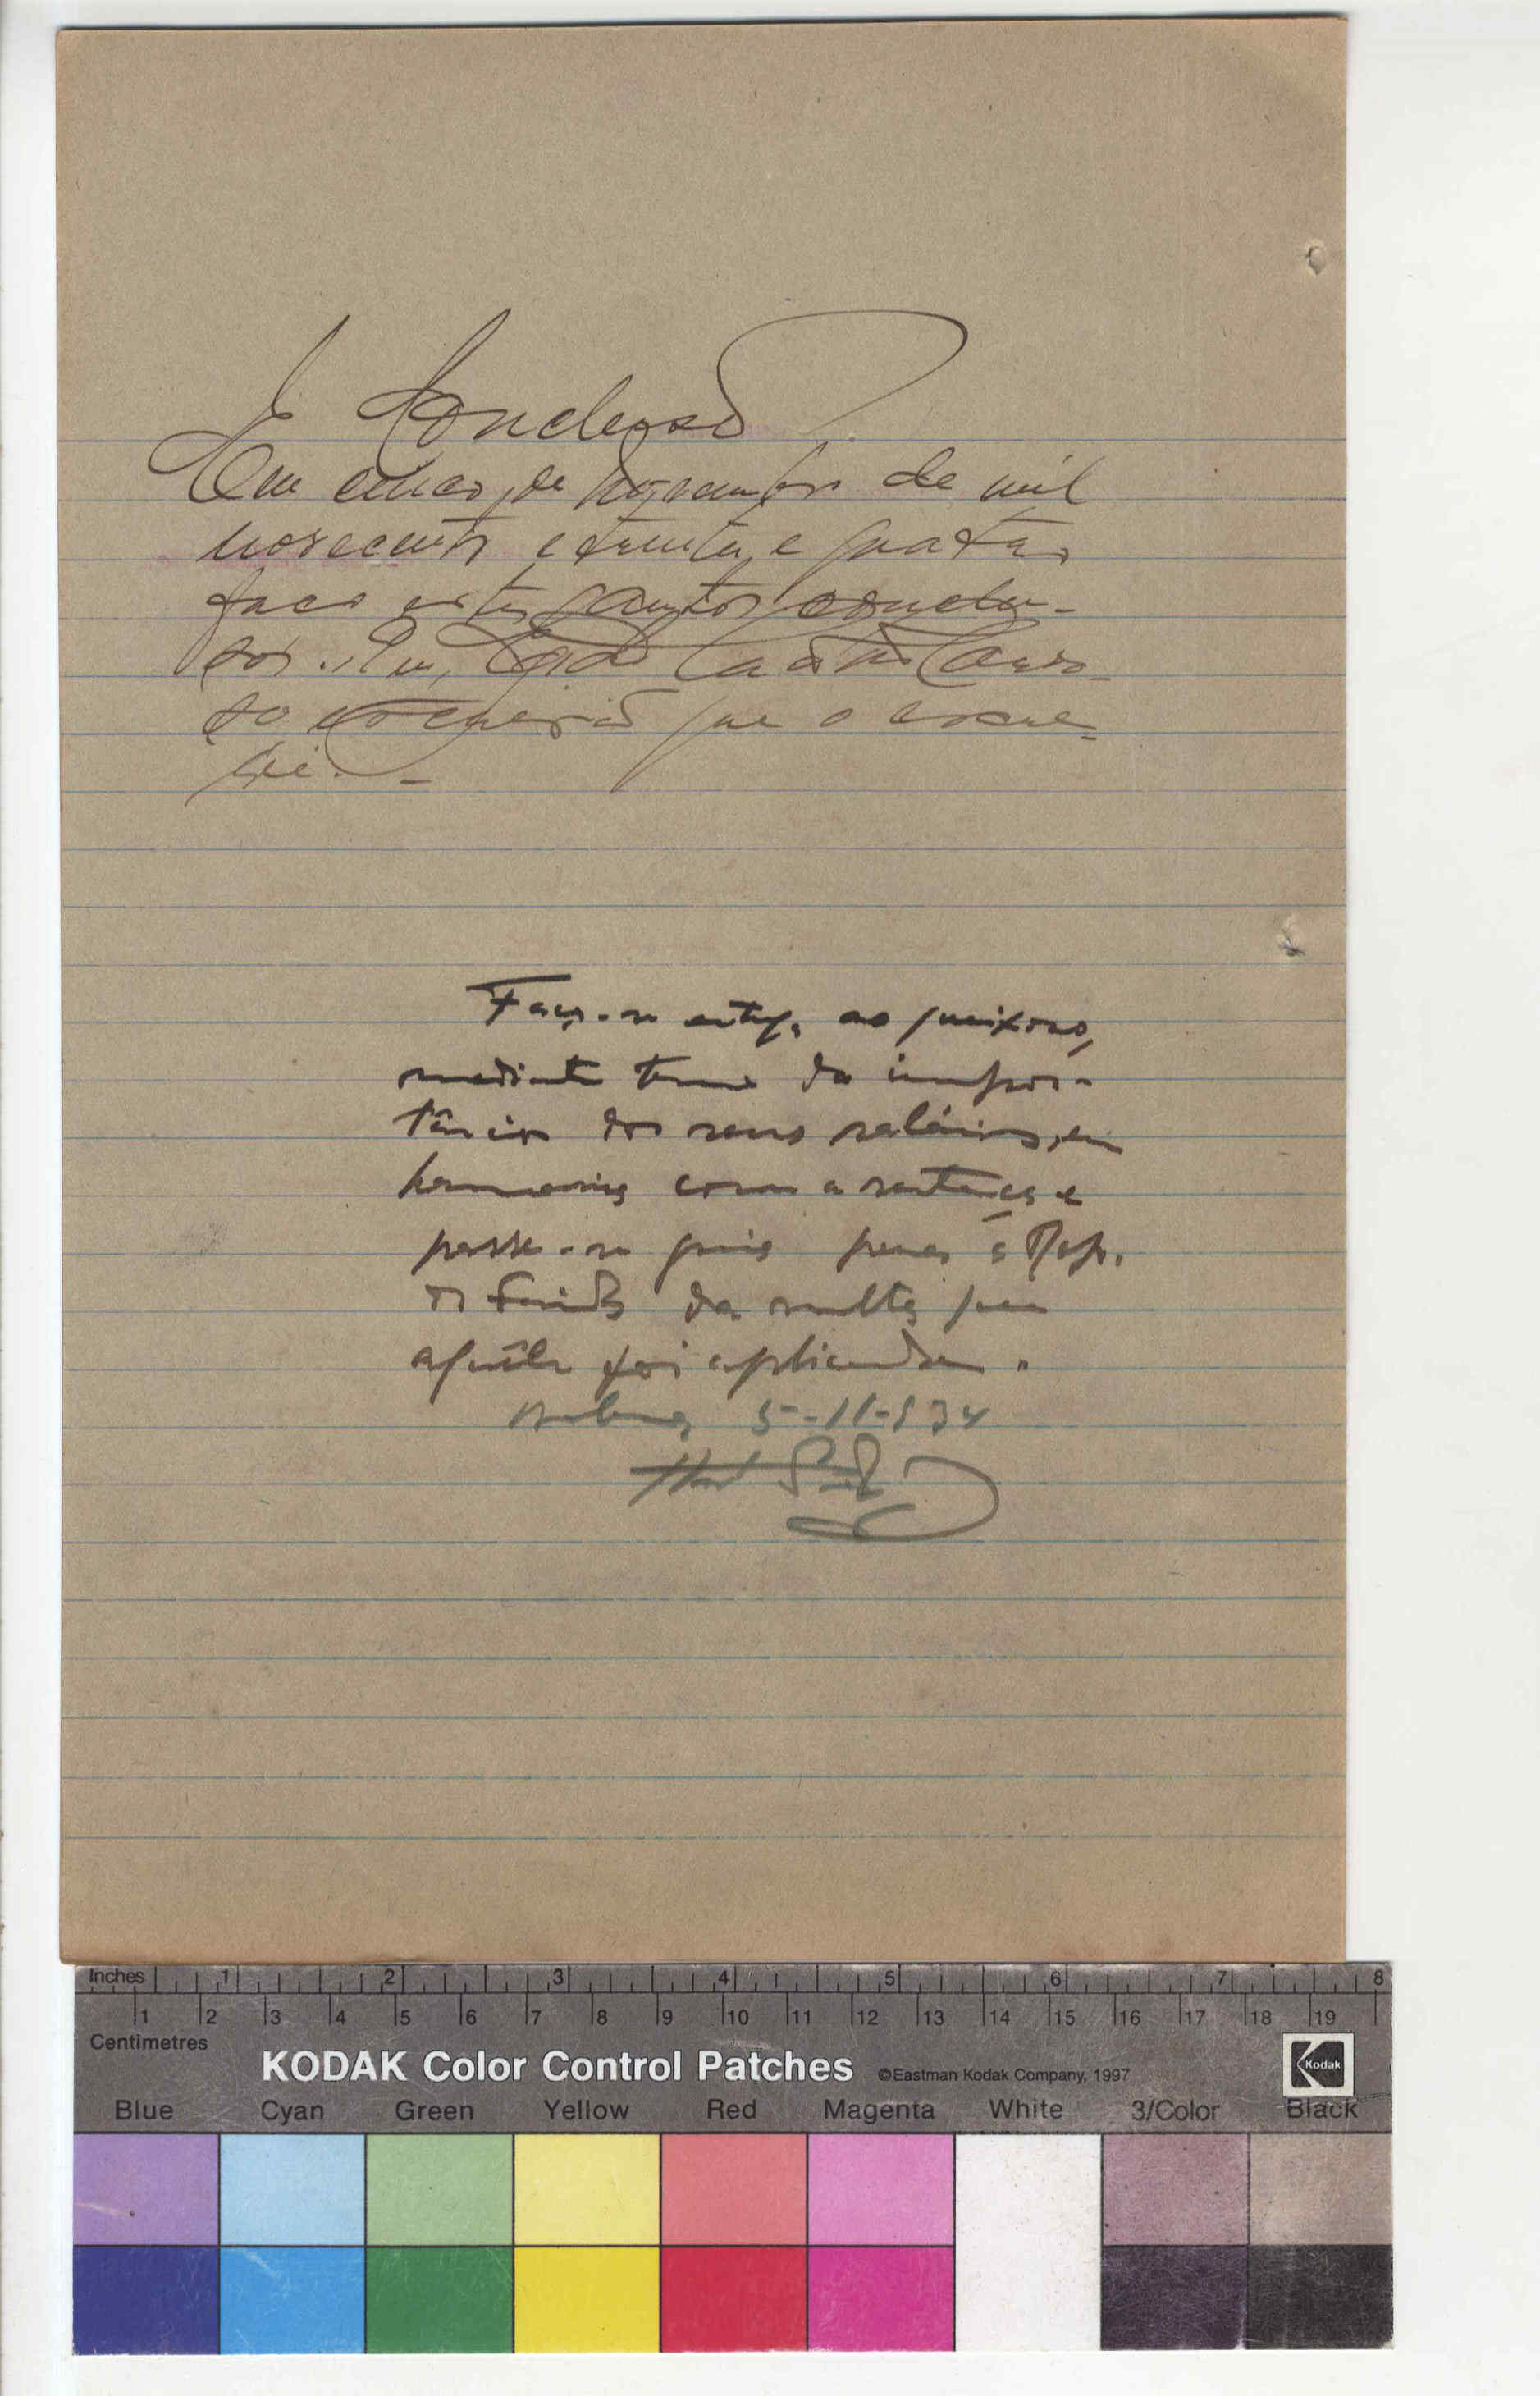 E Conclusão
Em cinco de Novembro de mil
novecentos e trinta e quatro
faço estes autos conclu-
sos. Eu,
so escrivão que o escre-
vi. -
Faça-se entrega ao queixoso,
mediante termo da impor-
tância dos seus salários, em
harmonia com a sentença e
passe-se guia para á Rep.
da multa que
aquêle foi aplicada.
5-11-934
Inches 1 2 3 4 5 6 7 8
1 2 3 4 5 6 7 8 9 10 11 12 13 14 15 16 17 18 19
Centimetres
KODAK Color Control Patches ©Eastman Kodak Company, 1997 Kodak
Blue Cyan Green Yellow Red Magenta White 3/Color Black